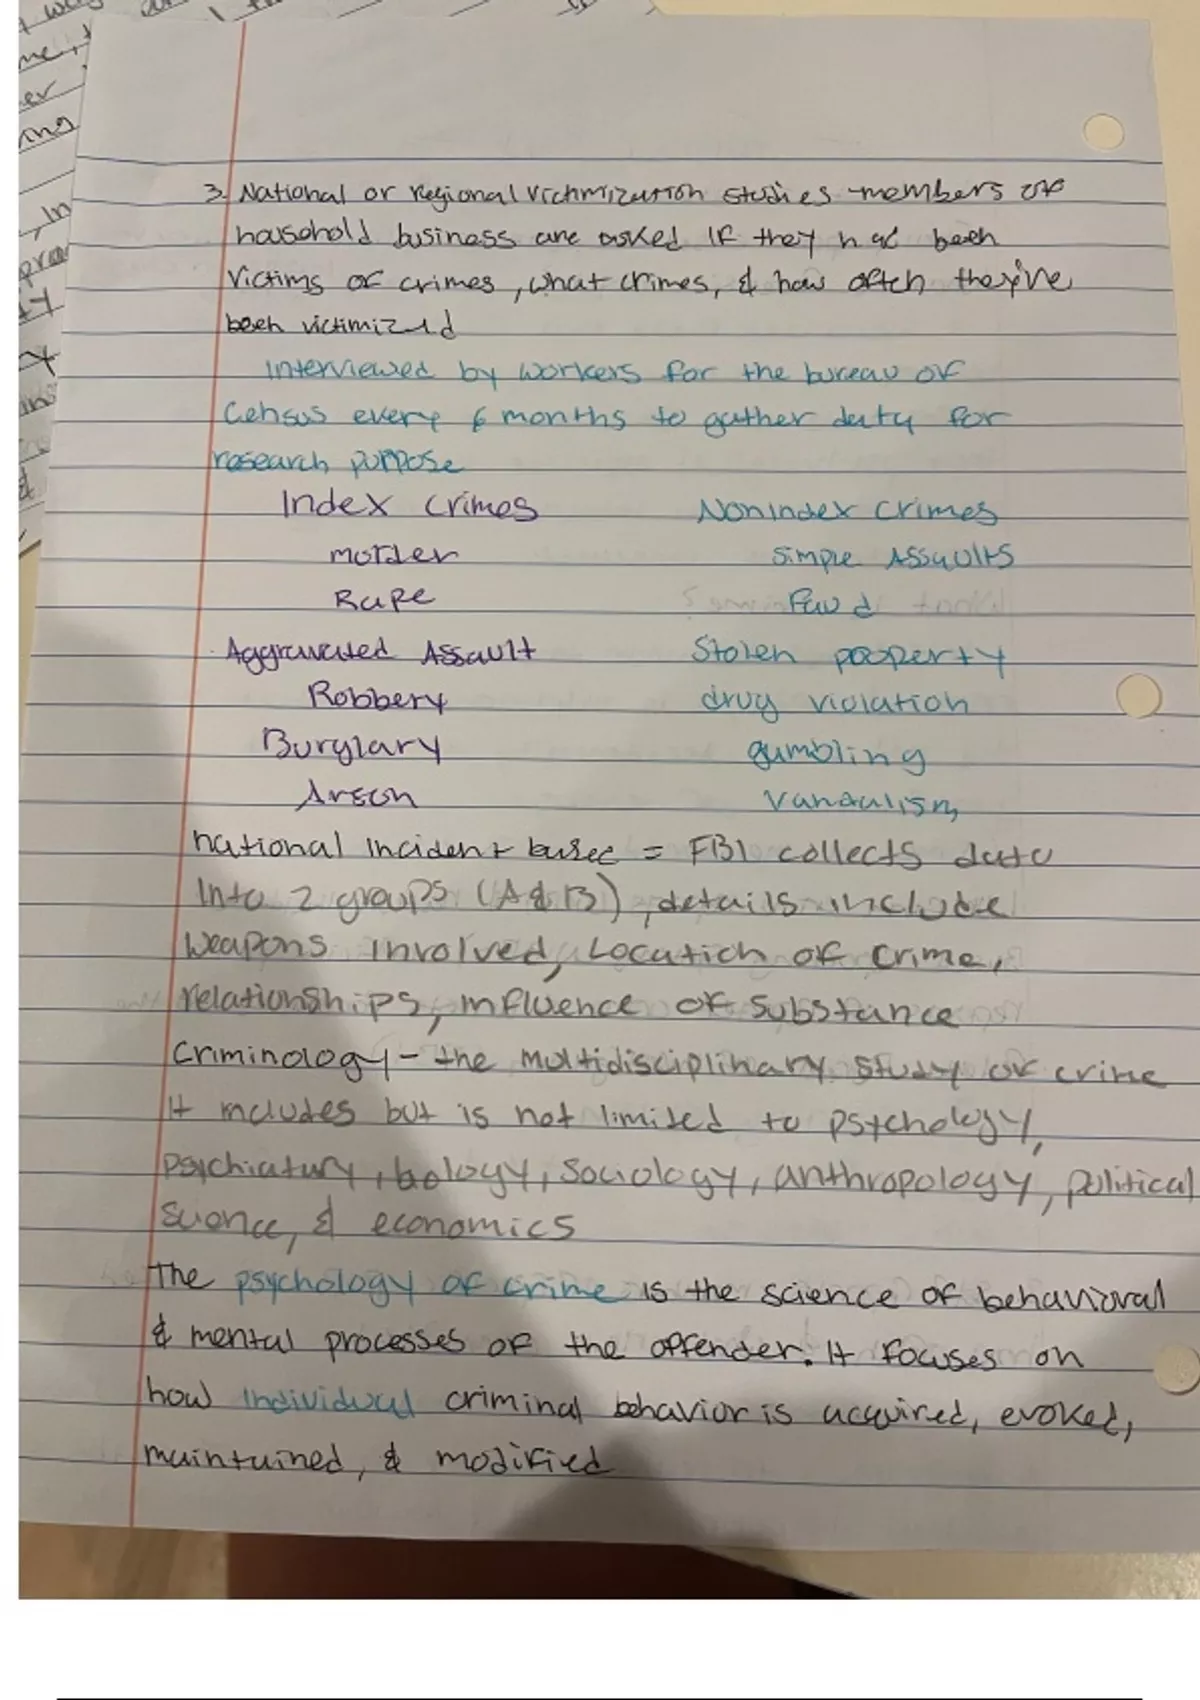 3. National or regional victimization studies - members of
household business are asked if they had been
victims of crimes, what crimes, & how often they've
been victimized
interviewed by workers for the bureau of
Census every 6 months to gather daty for
research purpose
Index crimes Nonindex crimes
murder simple Assaults
Rape
Aggravated Assault Stolen property
Robbery drug violation
Burglary gambling
Arson vandalism
national incident based = FBI collects data
into 2 groups (A & B), details include
weapons involved, Location of crime,
relationships, influence of substance
Criminology - the multidisciplinary study of crime
It includes but is not limited to psychology,
psychiatury, bology, sociology, anthropology, political
science, & economics
The psychology of crime is the science of behavioral
& mental processes of the offender. It focuses on
how individual criminal behavior is acquired, evoked,
maintained, & modified